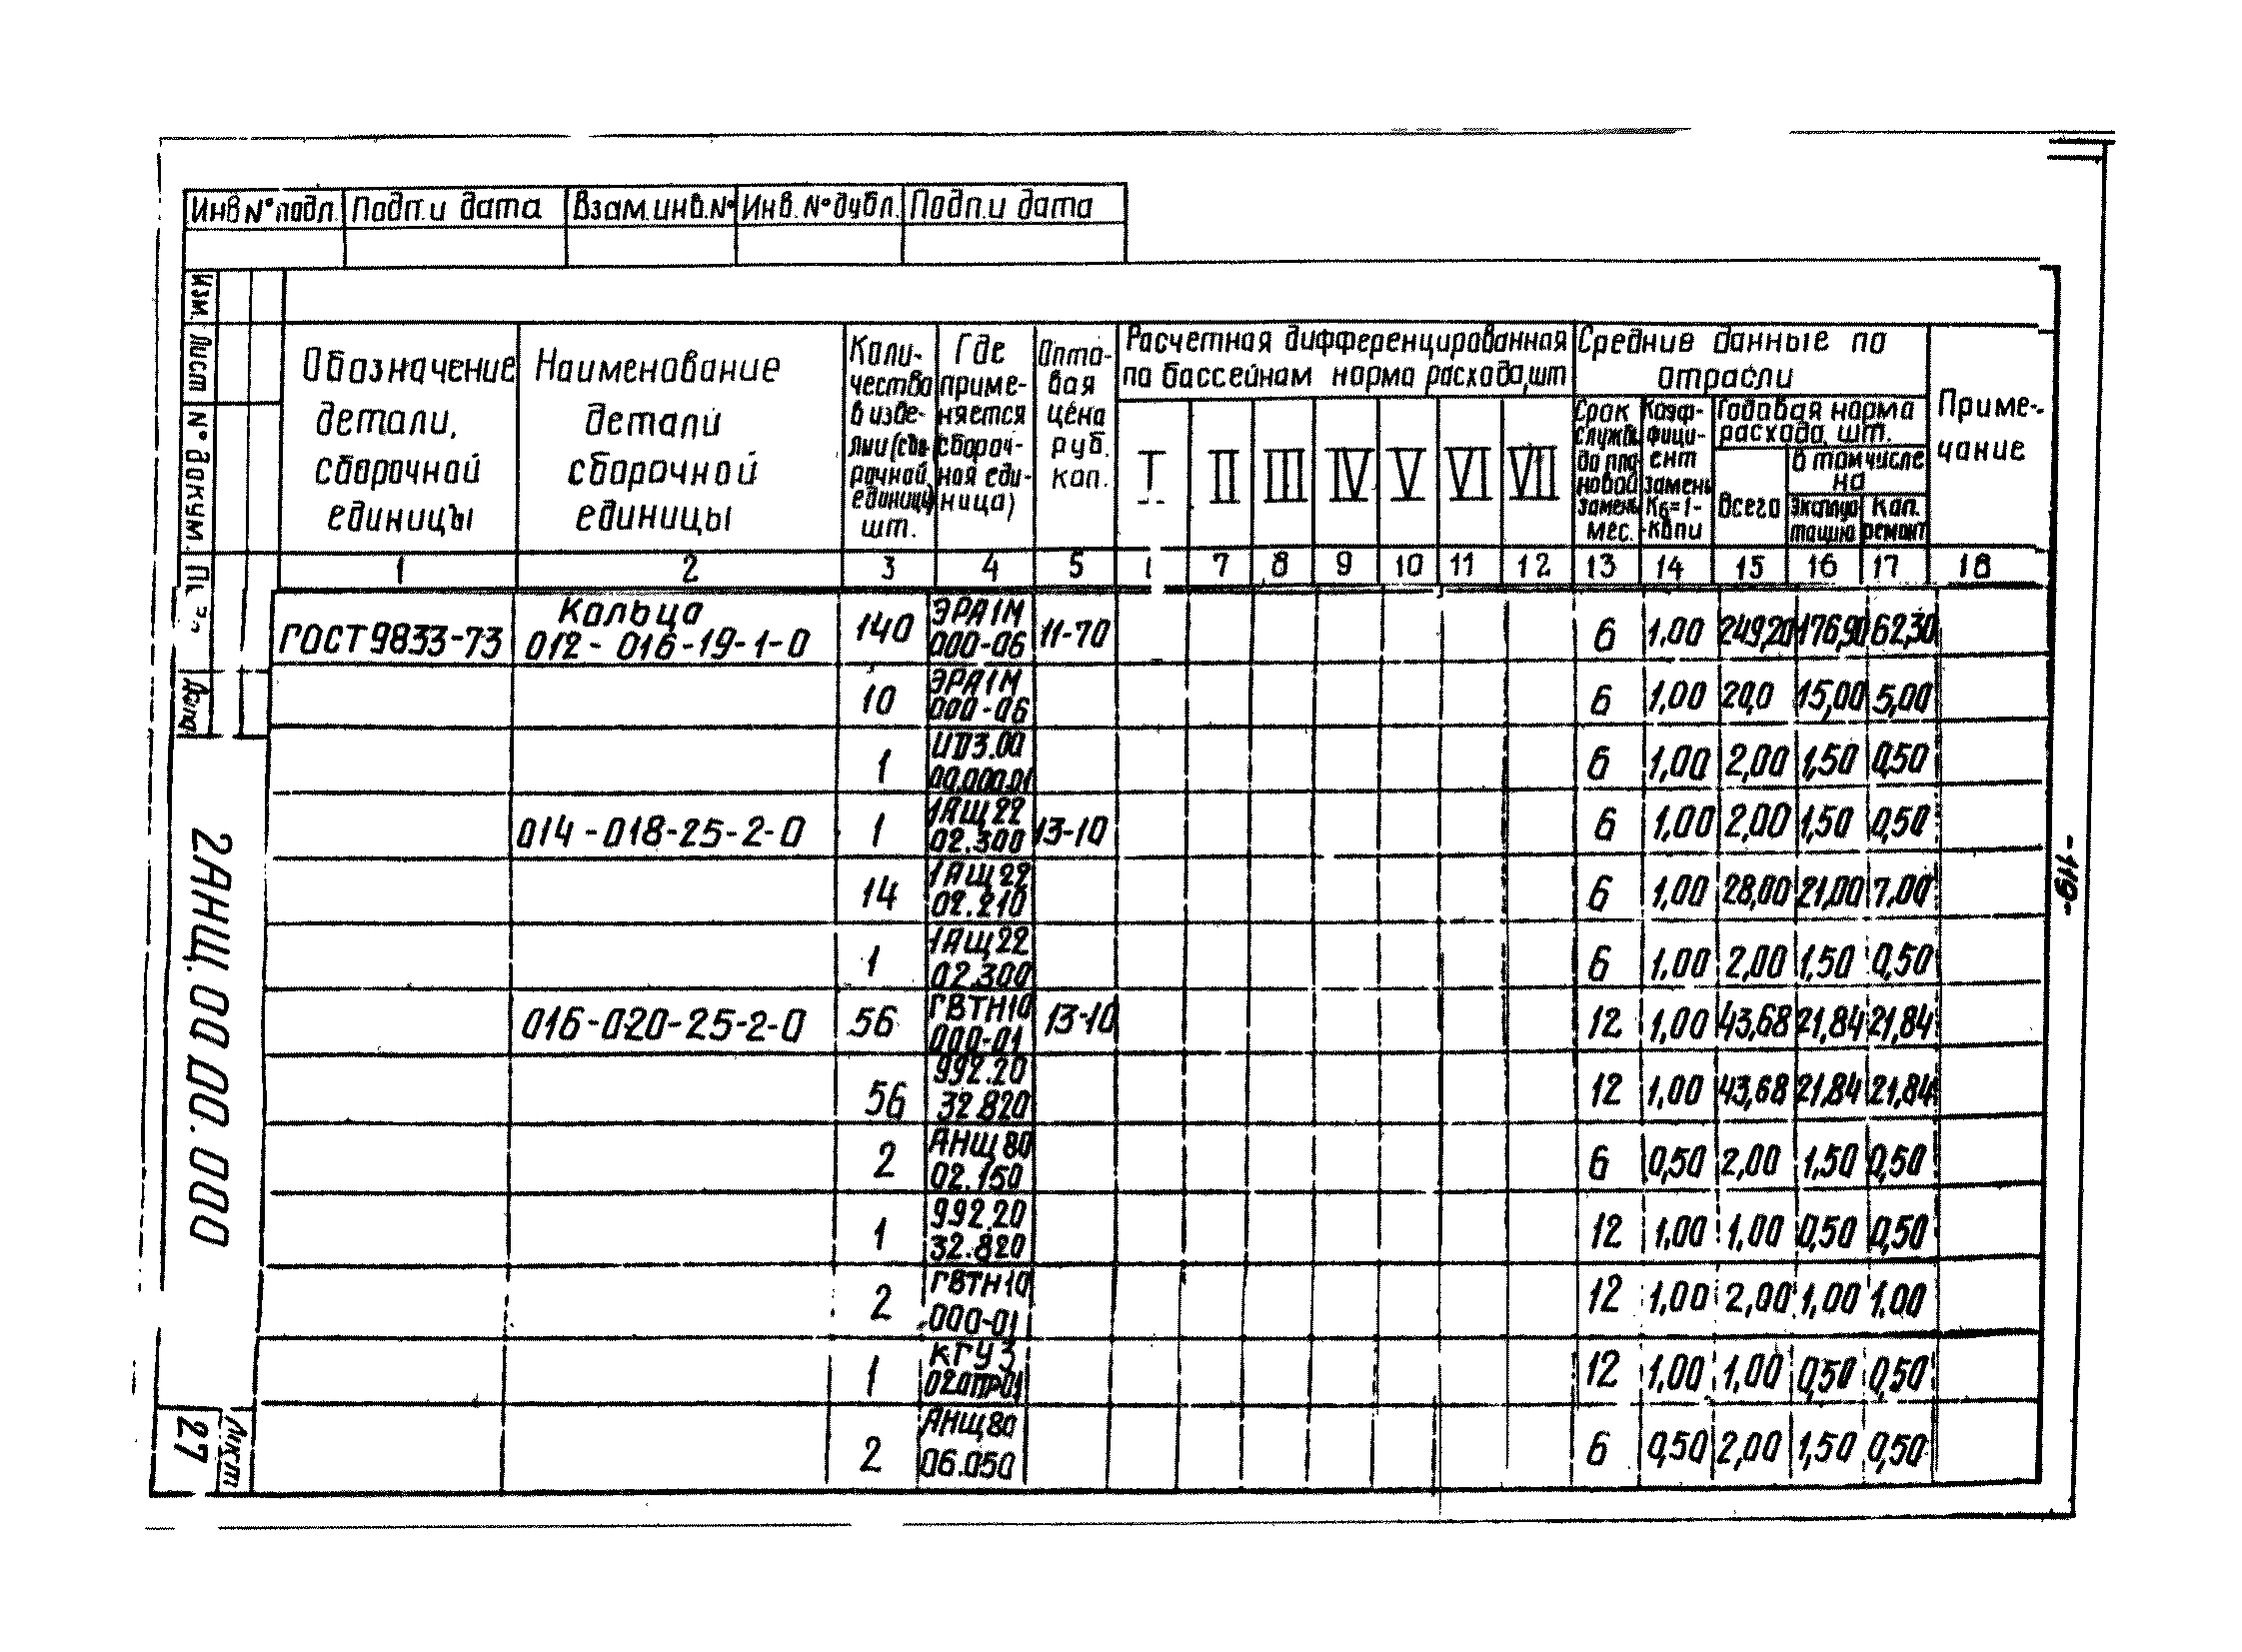 Инв N° подл. Подп. и дата Взам. инв. N° Инв. N° дубл. Подп. и дата
Изм. Лист N° докум.
Обозначение детали, сборочной единицы
Наименование детали сборочной единицы
Количество в изделии (сборочной единицы) шт.
Где применяется сборочная единица)
Оптовая цена руб. коп.
Расчетная дифференцированная по бассейнам норма расхода, шт
I II III IV V VI VII
Средние данные по отрасли
Срок службы до плановой замены мес.
Коэффициент замены Kб=1-
Годовая норма расхода, шт.
Всего
в том числе на
Эксплуатацию
Кап. ремонт
Примечание
1 2 3 4 5 7 8 9 10 11 12 13 14 15 16 17 18
ГОСТ 9833-73 Кольца 012-016-19-1-0 140 ЭРА1М 000-06 11-70 6 1,00 249,20 176,90 62,30
10 ЭРА1М 000-06 6 1,00 20,0 15,00 5,00
1 00.000.01 6 1,00 2,00 1,50 0,50
014-018-25-2-0 1 1АЩ22 02.300 13-10 6 1,00 2,00 1,50 0,50
14 1АЩ22 02.210 6 1,00 28,00 21,00 7,00
1 1АЩ22 02.300 6 1,00 2,00 1,50 0,50
016-020-25-2-0 56 ГВТН10 000-01 13-10 12 1,00 43,68 21,84 21,84
56 992.20 32.820 12 1,00 43,68 21,84 21,84
2 АНЩ80 02.150 6 0,50 2,00 1,50 0,50
1 992.20 32.820 12 1,00 1,00 0,50 0,50
2 ГВТН10 000-01 12 1,00 2,00 1,00 1,00
1 КГУ3 020ПР01 12 1,00 1,00 0,50 0,50
2 АНЩ80 06.050 6 0,50 2,00 1,50 0,50
2АНЩ.00Д0.000
Лист
27
-119-